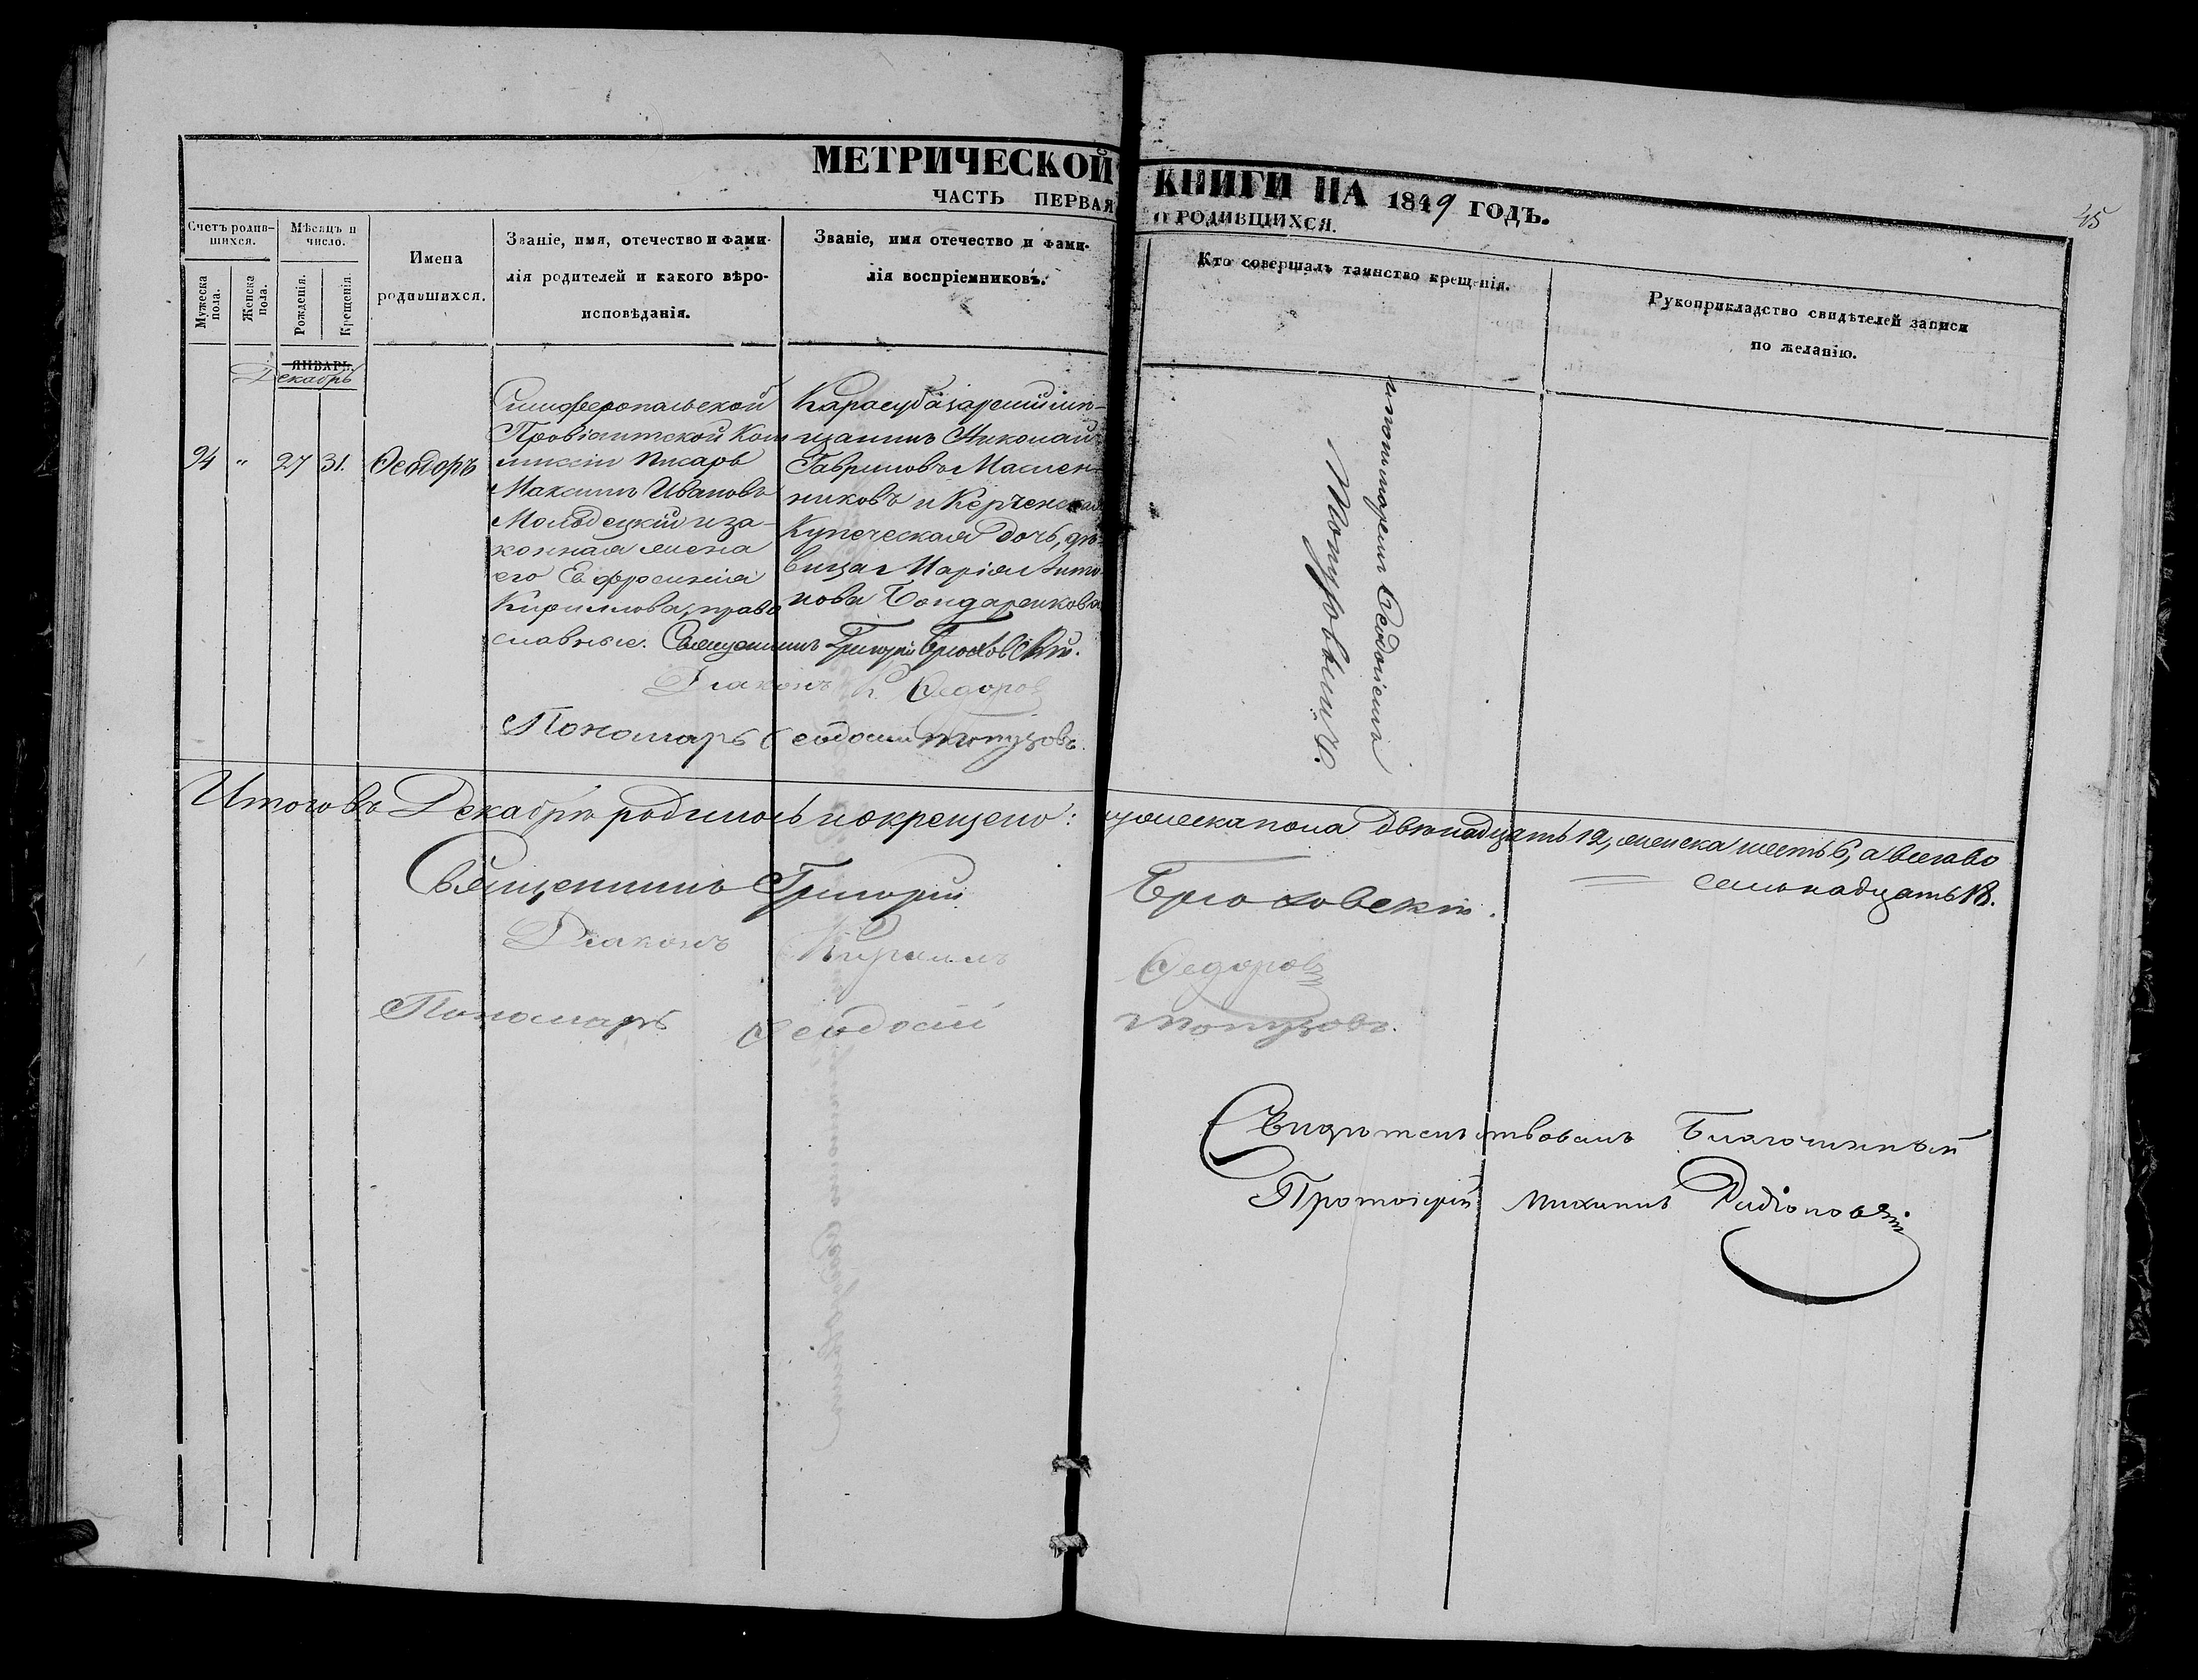 МЕТРИЧЕСКОЙ КНИГИ НА 1849 ГОДЪ.
ЧАСТЬ ПЕРВАЯ О РОДИВШИХСЯ.
45
Счетъ родив-
шихся.
Мужеска
пола.
Женска
пола.
Мѣсяцъ и
число.
Рожденія.
Крещенія.
Имена
родившихся.
Званіе, имя, отечество и фами-
лія родителей и какого вѣро-
исповѣданія.
Званіе, имя отечество и фами-
лія воспріемниковъ.
Кто совершалъ таинство крещенія.
Рукоприкладство свидѣтелей записи
по желанію.
ЯНВАРЬ.
Декабрь
94 " 27 31. Ѳеодоръ
Симферопольской
Провіантской Ком
миссіи Писарь
Максимъ Ивановъ
Молодецкій и за-
конная жена
его Евфросинія
Кириллова, право
славные.
Карасубазарскій мѣ-
щанинъ Николай
Гавриловъ Маслен-
никовъ и Керченская
Купеческая дочь, дѣ-
вица Марія Анто-
нова Бондаренкова
Священникъ Григорій Брюховскій.
Діаконъ К. Ѳедоровъ
Пономарь Ѳеодосій Топузовъ.
и пономаремъ Ѳеодосіемъ
Топузовымъ.
Итого въ Декабрѣ родилось и окрещено: мужеска пола двѣнадцать 12, женска шесть 6, а всего во
семьнадцать 18.
Священникъ Григорій Брюховскій.
Діаконъ Кириллъ Ѳедоровъ
Пономарь Ѳеодосій Топузовъ.
Свидѣтельствовалъ Благочинный
Протоіерей Михаилъ Родіоновъ